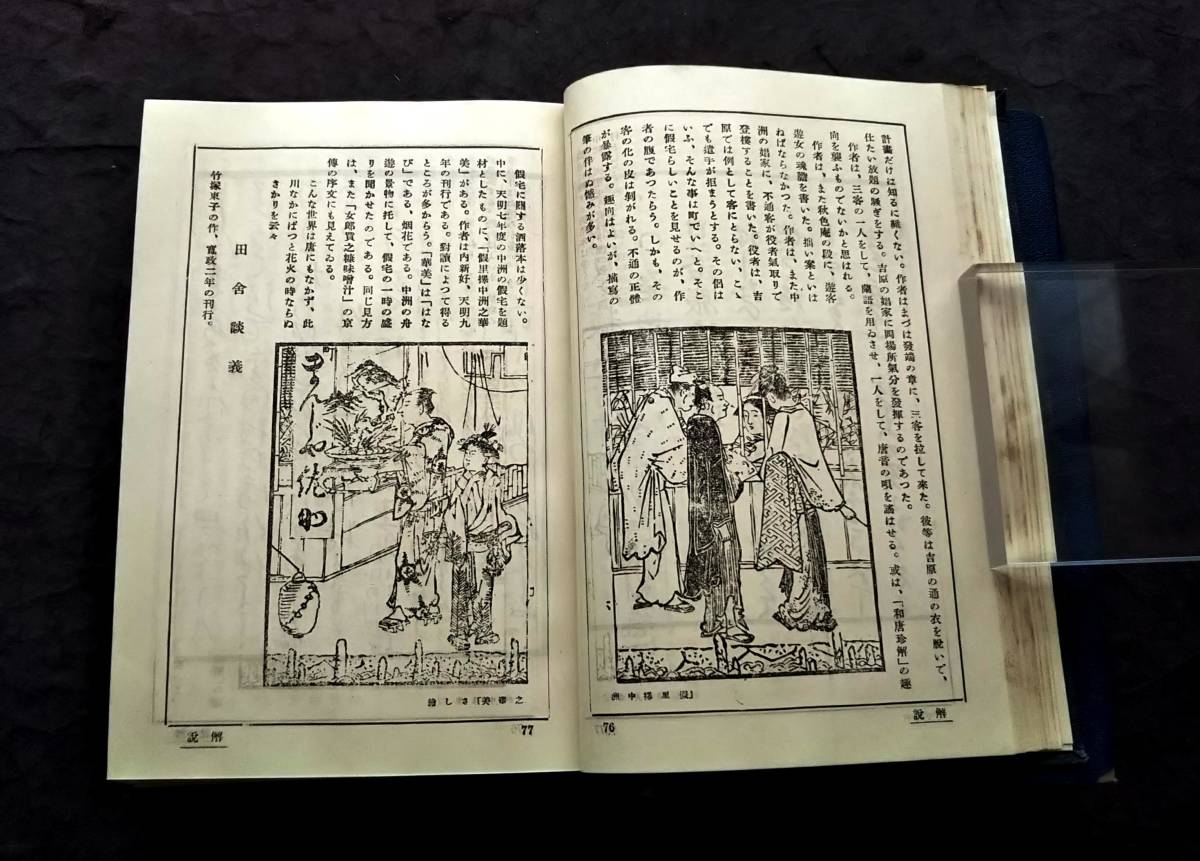 計畫だけは知るに難くない。作者はまづは發端の章に、三客を拉して來た。彼等は吉原の通の衣を脫いで、
仕たい放題の騷ぎをする。吉原の娼家に岡場所氣分を發揮するのであつた。
作者は、三客の一人をして、蘭語を用ゐさせ、一人をして、唐音の唄を謠はせる。或は、「和唐珍解」の趣
向を襲ふものでないかと思はれる。
作者は、また秋色庵の段に、遊客
遊女の魂膽を書いた。拙い案といは
ねばならなかつた。作者は、また中
洲の娼家に、不通客が役者氣取りで
登樓することを書いた。役者は、吉
原では例として客にとらない、こゝ
でも遣手が拒まうとする。その侶は
いふ、そんな事は町でいへと。そこ
に假宅らしいことを見せるのが、作
者の腹であつたらう。しかも、その
客の化の皮は剝がれる。不通の正體
が暴露する。趣向はよいが、描寫の
筆の伴はぬ憾みが多い。
「假里擇中洲
76
解說
假宅に關する洒落本は少くない。
中に、天明七年度の中洲の假宅を題
材としたものに、「假里擇中洲之華
美」がある。作者は內新好、天明九
年の刊行である。對讀によつて得る
ところが多からう。「華美」は「はな
び」である、烟花である。中洲の舟
遊の景物に托して、假宅の一時の盛
りを聞かせたのである。同じ見方
は、また「女郎買之糠味噌汁」の京
傳の序文にも見えてゐる。
こんな世界は唐にもなかず、此
川なかにぱつと花火の時ならぬ
さかりを云々
田舍談義
竹塚東子の作、寬政二年の刊行。
之華美」さし繪
77
解說